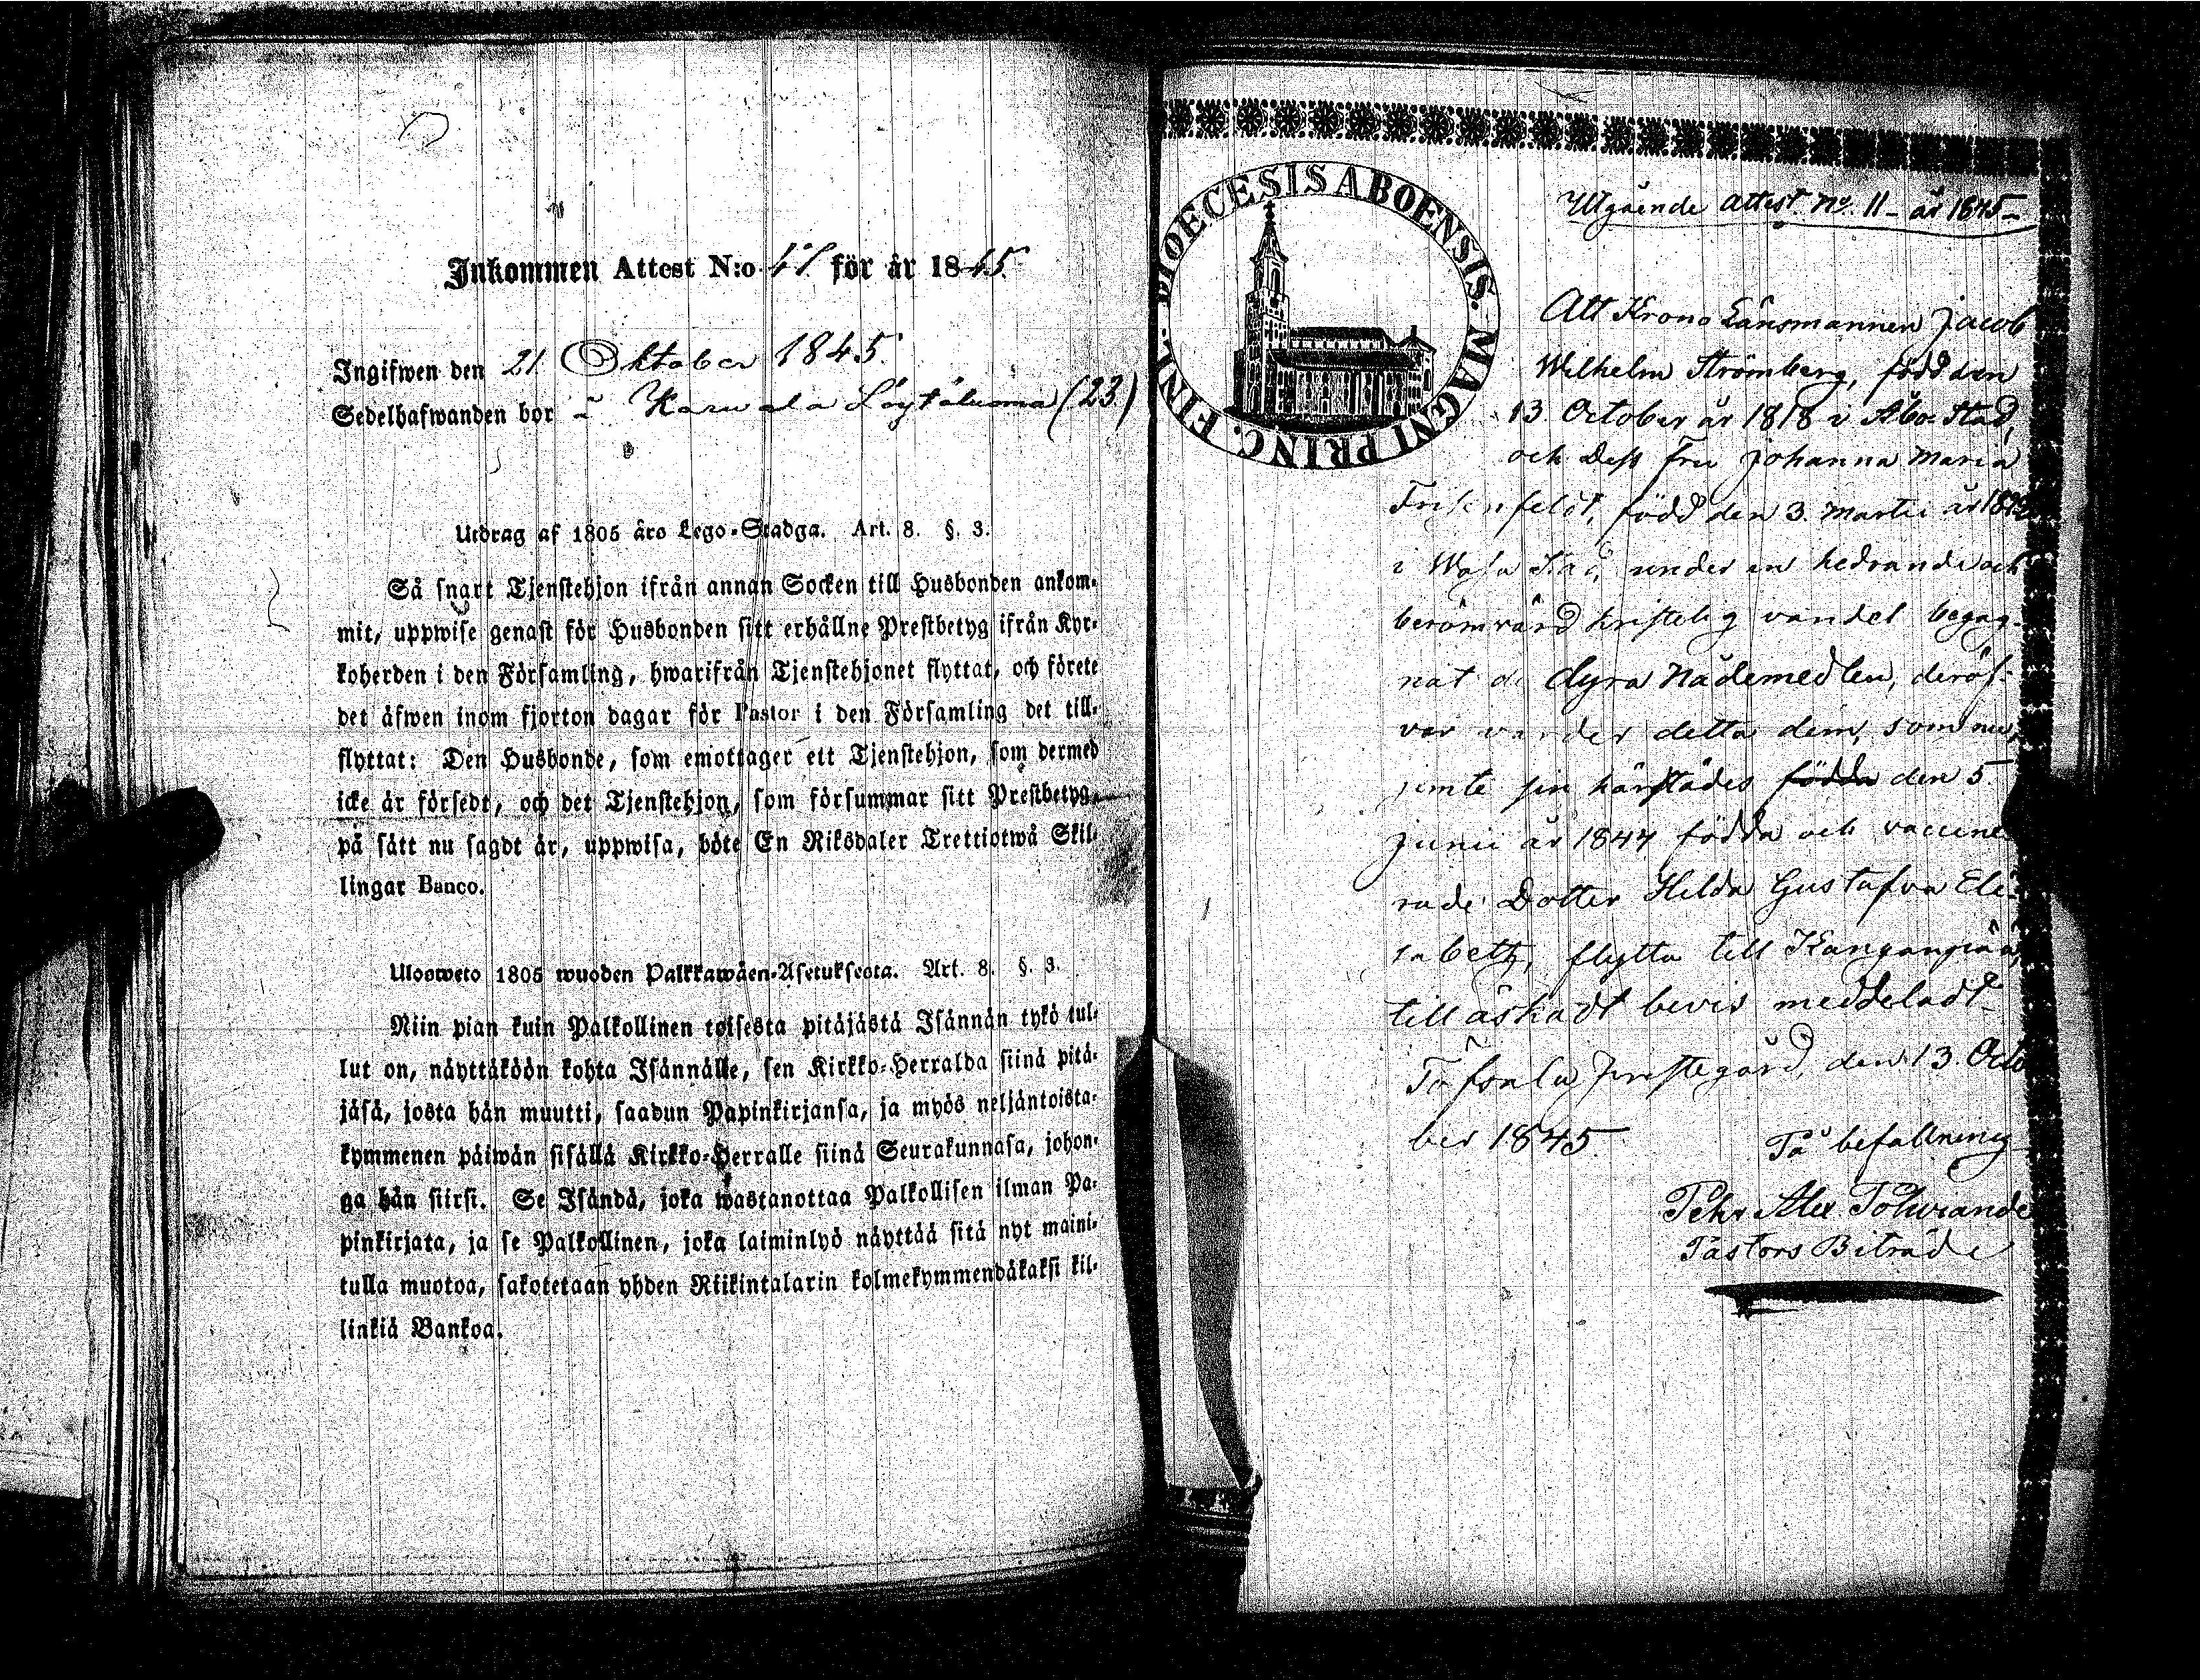 Inkommen Attest N:o 41 för år 1845.
Ingifwen den 21 Oktober 1845.
Sedelhafwanden bor å Karuala (23)
Utdrag af 1805 års Lego-Stadga. Art. 8. §. 3.
Så snart Tjenstehjon ifrån annan Socken till Husbonden ankom-
mit, uppwise genast för Husbonden sitt erhållne Prestbetyg ifrån Kyr-
koherden i den Församling, hwarifrån Tjenstehjonet flyttat, och förete
det äfwen inom fjorton dagar för Pastor i den Församling det till-
flyttat: Den Husbonde, som emottager ett Tjenstehjon, som dermed
icke är försedt, och det Tjenstehjon, som försummar sitt Prestbetyg,
på sätt nu sagdt är, uppwisa, böte En Riksdaler Trettiotwå Skil-
lingar Banco.
Ulosweto 1805 wuoden Palkkawäen-Asetuksesta. Art. 8. §. 3.
Niin pian kuin Palkollinen toisesta pitäjästä Isännän tykö tul-
lut on, näyttäköön kohta Isännälle, sen Kirkko-Herralda siinä pitä-
jäsä, josta hän muutti, saadun Papinkirjansa, ja myös neljäntoista-
kymmenen päiwän sisällä Kirkko-Herralle siinä Seurakunnasa, johon-
ga hän siirsi. Se Isändä, joka wastanottaa Palkollisen ilman Pa-
pinkirjata, ja se Palkollinen, joka laiminlyö näyttää sitä nyt maini-
tulla muotoa, sakotetaan yhden Riikintalarin kolmekymmendäkaksi kil-
linkiä Bankoa.
DIOECESIS ABOENSIS. MAGNI PRINC. FINL.
Utgående attest No. 11 - år 1845 -
Att Krono Länsmannen Jacob
Wilhelm Strömberg, född den
13 October år 1818 i Åbo Stad,
och Dess Fru Johanna Maria
född den 3. Martii år
i Wasa Stad, under en hedrande och
berömvärd kristelig vandel begag-
nat de dyra Nådemedlen, deröf-
ver varder detta dem, som nu,
jemte sin härstädes födda den 5.
Junii år 1844 födda och vaccine
rade Dotter Hilda Gustafva Eli-
sabeth, flytta till Kanganpää,
till äskadt bevis meddeladt
Töfsala Prestegård, den 13. Octo
ber 1845.
På befallning
Pehr Alex
Pastors Biträde